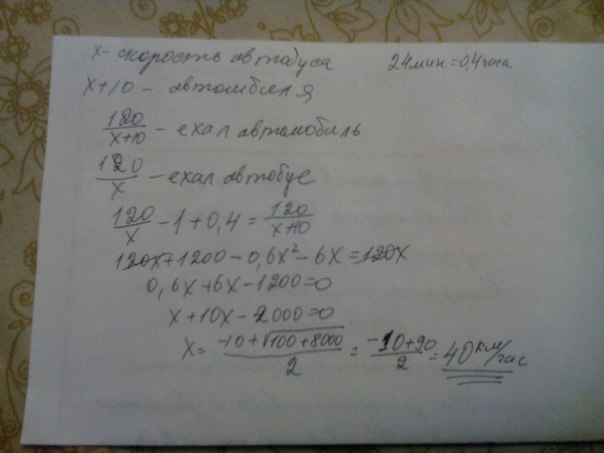 x - скорость автобуса 24 мин = 0,4 часа
x+10 - автомобиля
120/(x+10) - ехал автомобиль
120/x - ехал автобус
120/x - 1 + 0,4 = 120/(x+10)
120x + 1200 - 0,6x² - 6x = 120x
0,6x + 6x - 1200 = 0
x + 10x - 2000 = 0
x = (-10 + √(100 + 8000))/2 = (-10 + 90)/2 = 40 км/час